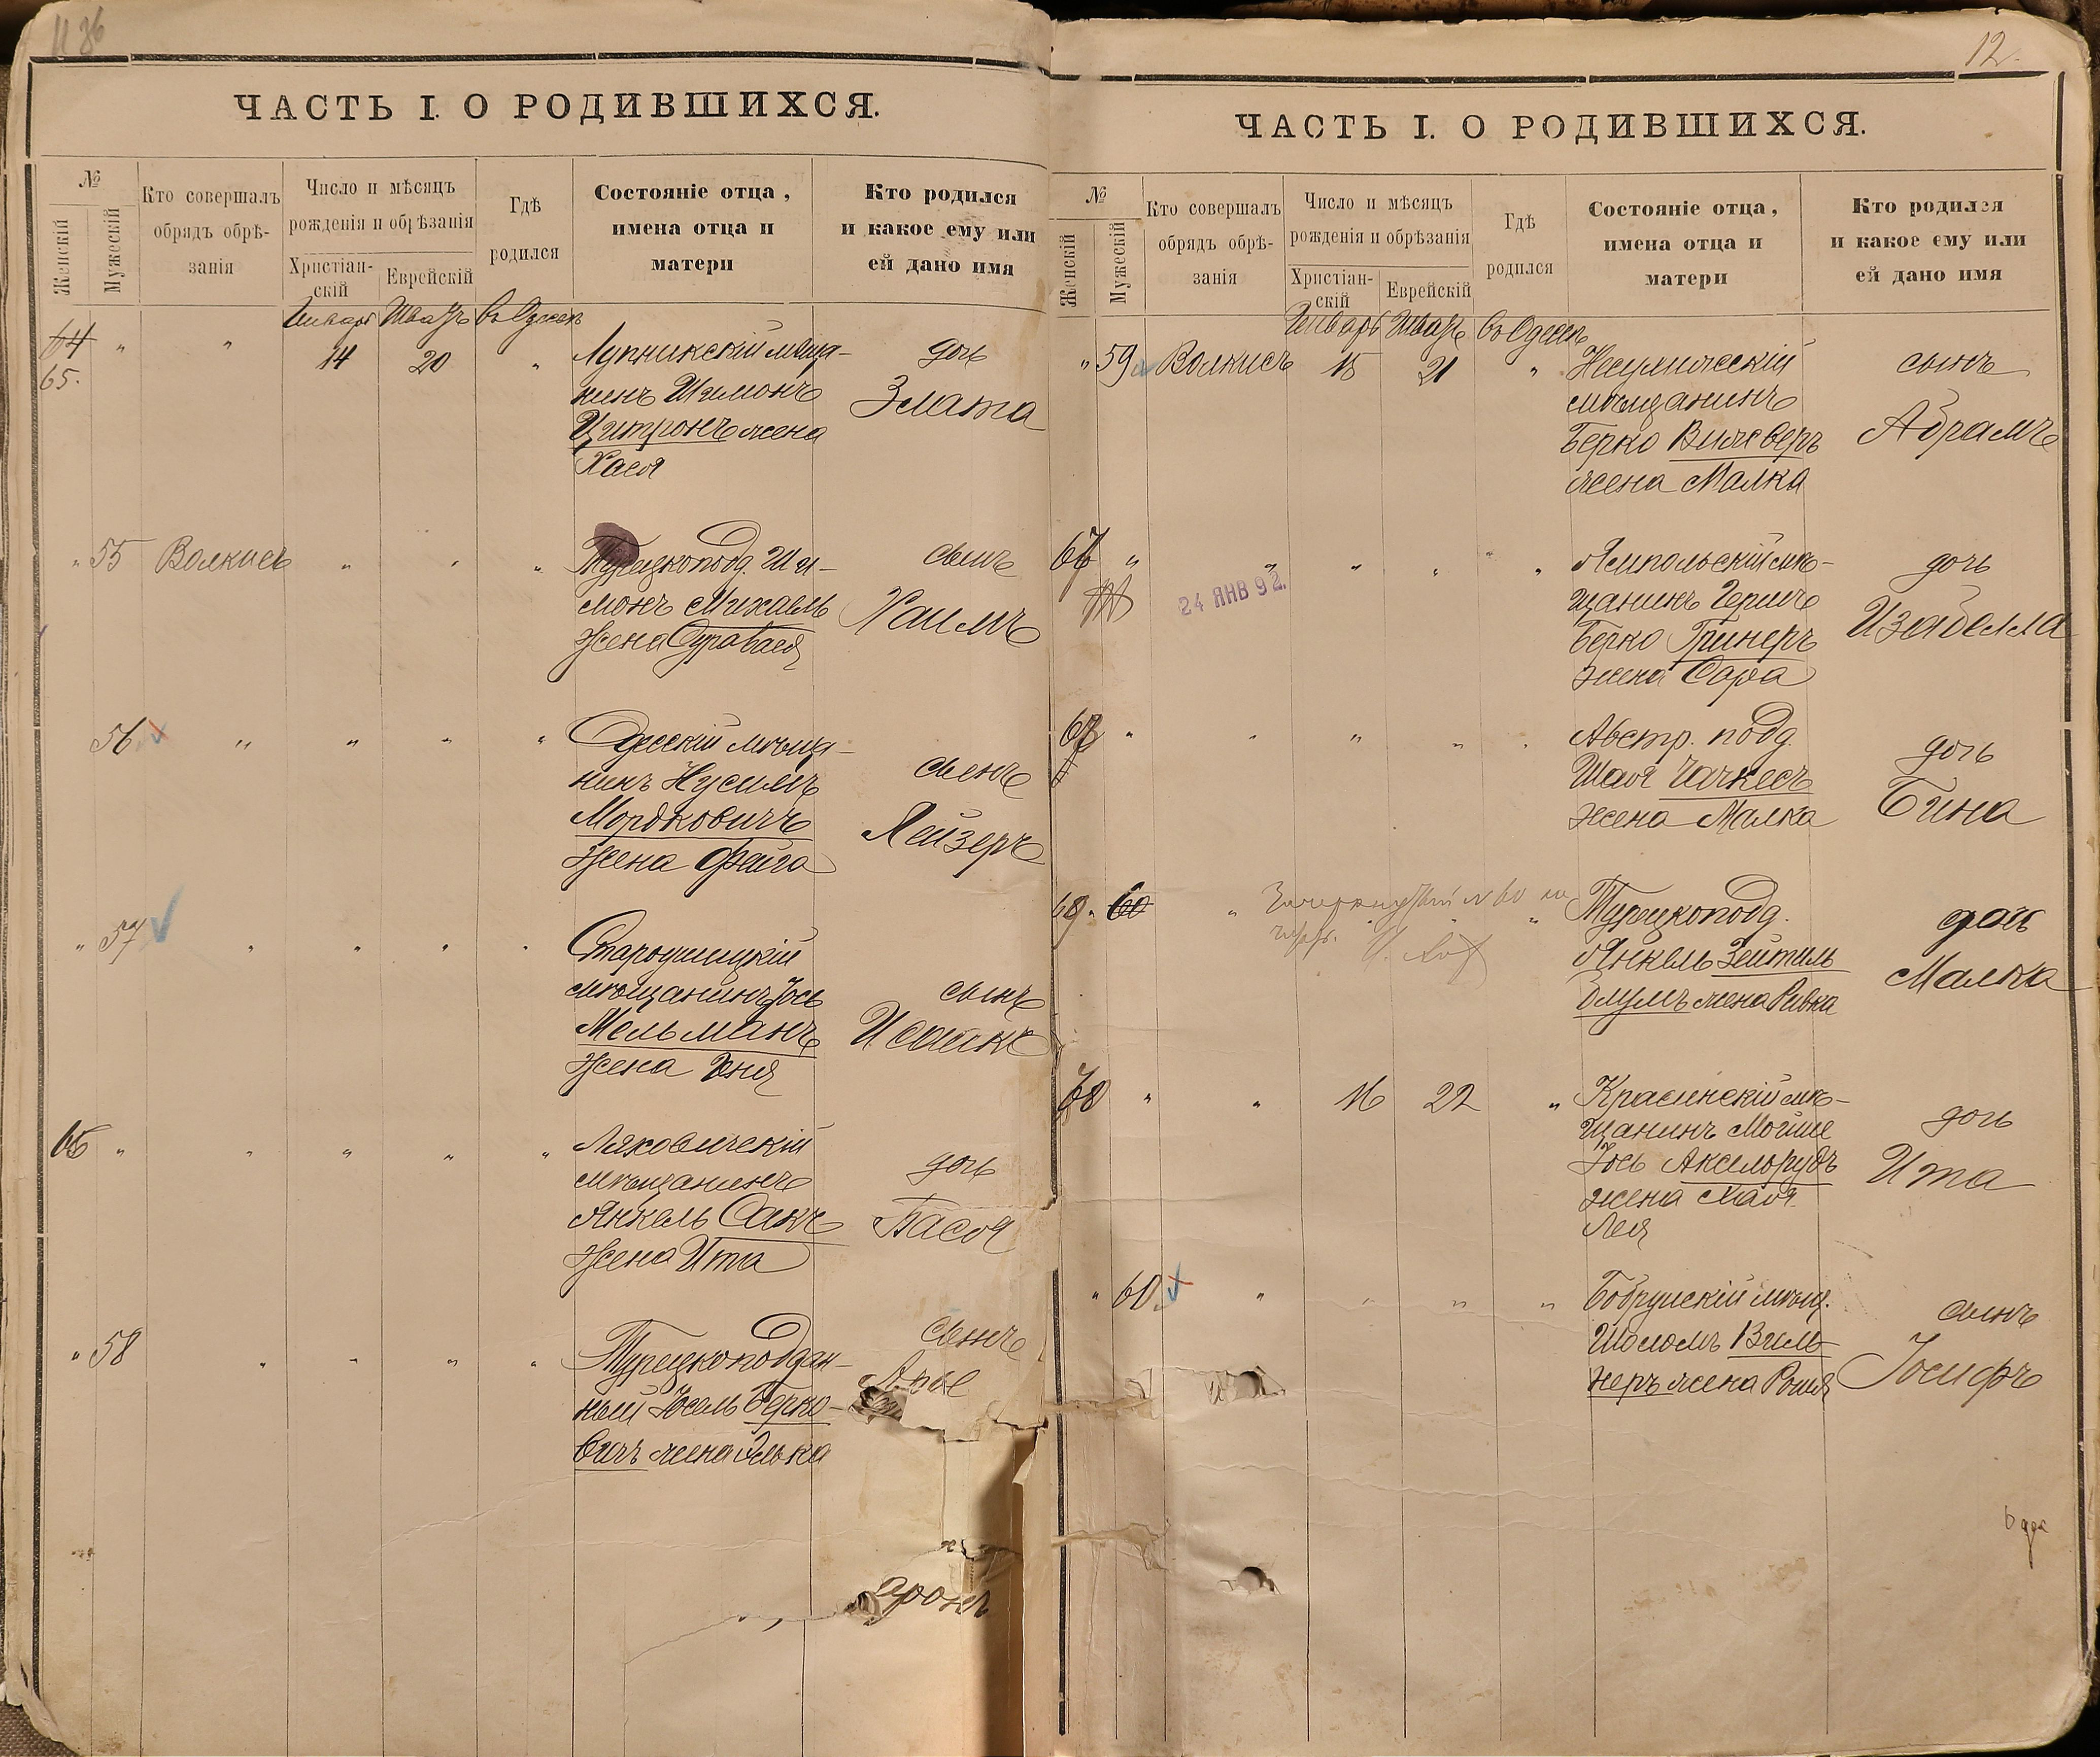 11 36
ЧАСТЬ I. О РОДИВШИХСЯ.
№
Женскій
Мужескій
Кто совершалъ
обрядъ обрѣ-
занія
Число и мѣсяцъ
рожденія и обрѣзанія
Христіан-
скій
Еврейскій
Гдѣ
родился
Состояніе отца,
имена отца и
матери
Кто родился
и какое ему или
ей дано имя
Январь Шватъ въ Одессѣ
64 " " 14 20 "
65.
мѣща-
нинъ Шимонъ
Цитронъ жена
Хася
дочь
Злата
" 55 Волкисъ " " "
Турецкопод. Ши-
монъ Михаель
жена Сурабася
сынъ
Хаимъ
56 " " " "
Одесскій мѣща-
нинъ Нусимъ
Мордковичъ
жена Фейга
сынъ
Лейзеръ
" 57 " " " "
Староушицкій
мѣщанинъ Іось
Мельманъ
жена Эня
сынъ
66 " " " " "
Ляховичскій
мѣщанинъ
Янкель Сакъ
жена Ита
дочь
Бася
" 58 " " " "
Турецкоподдан-
ный Іосель Берко-
вичъ жена Элька
сынъ
Арье
аронъ
12.
ЧАСТЬ I. О РОДИВШИХСЯ.
№
Женскій
Мужескій
Кто совершалъ
обрядъ обрѣ-
занія
Число и мѣсяцъ
рожденія и обрѣзанія
Христіан-
скій
Еврейскій
Гдѣ
родился
Состояніе отца,
имена отца и
матери
Кто родился
и какое ему или
ей дано имя
Январь Шватъ въ Одессѣ
" 59 Волкисъ 15 21 "
мѣщанинъ
Берко
жена Малка
сынъ
Абрамъ
67 " " " " "
24 ЯНВ 92.
Ямпольскій мѣ-
щанинъ Гершъ
Берко Гринеръ
жена Сара
дочь
Изабелла
68 " " " " "
Австр. подд.
Шая Чачкесъ
жена Малка
дочь
Бина
69 " 60 " "
Турецкоподд.
Янкель Зейтиль
Блумъ жена Ривка
дочь
Малка
70 " " 16 22 "
Красинскій мѣ-
щанинъ Мойше
Іось Аксельрудъ
жена Хая
Лея
дочь
Ита
" 60 " " " "
Бобруйскій мѣщ.
Шоломъ Виль-
неръ жена Рошя
сынъ
Іосифъ